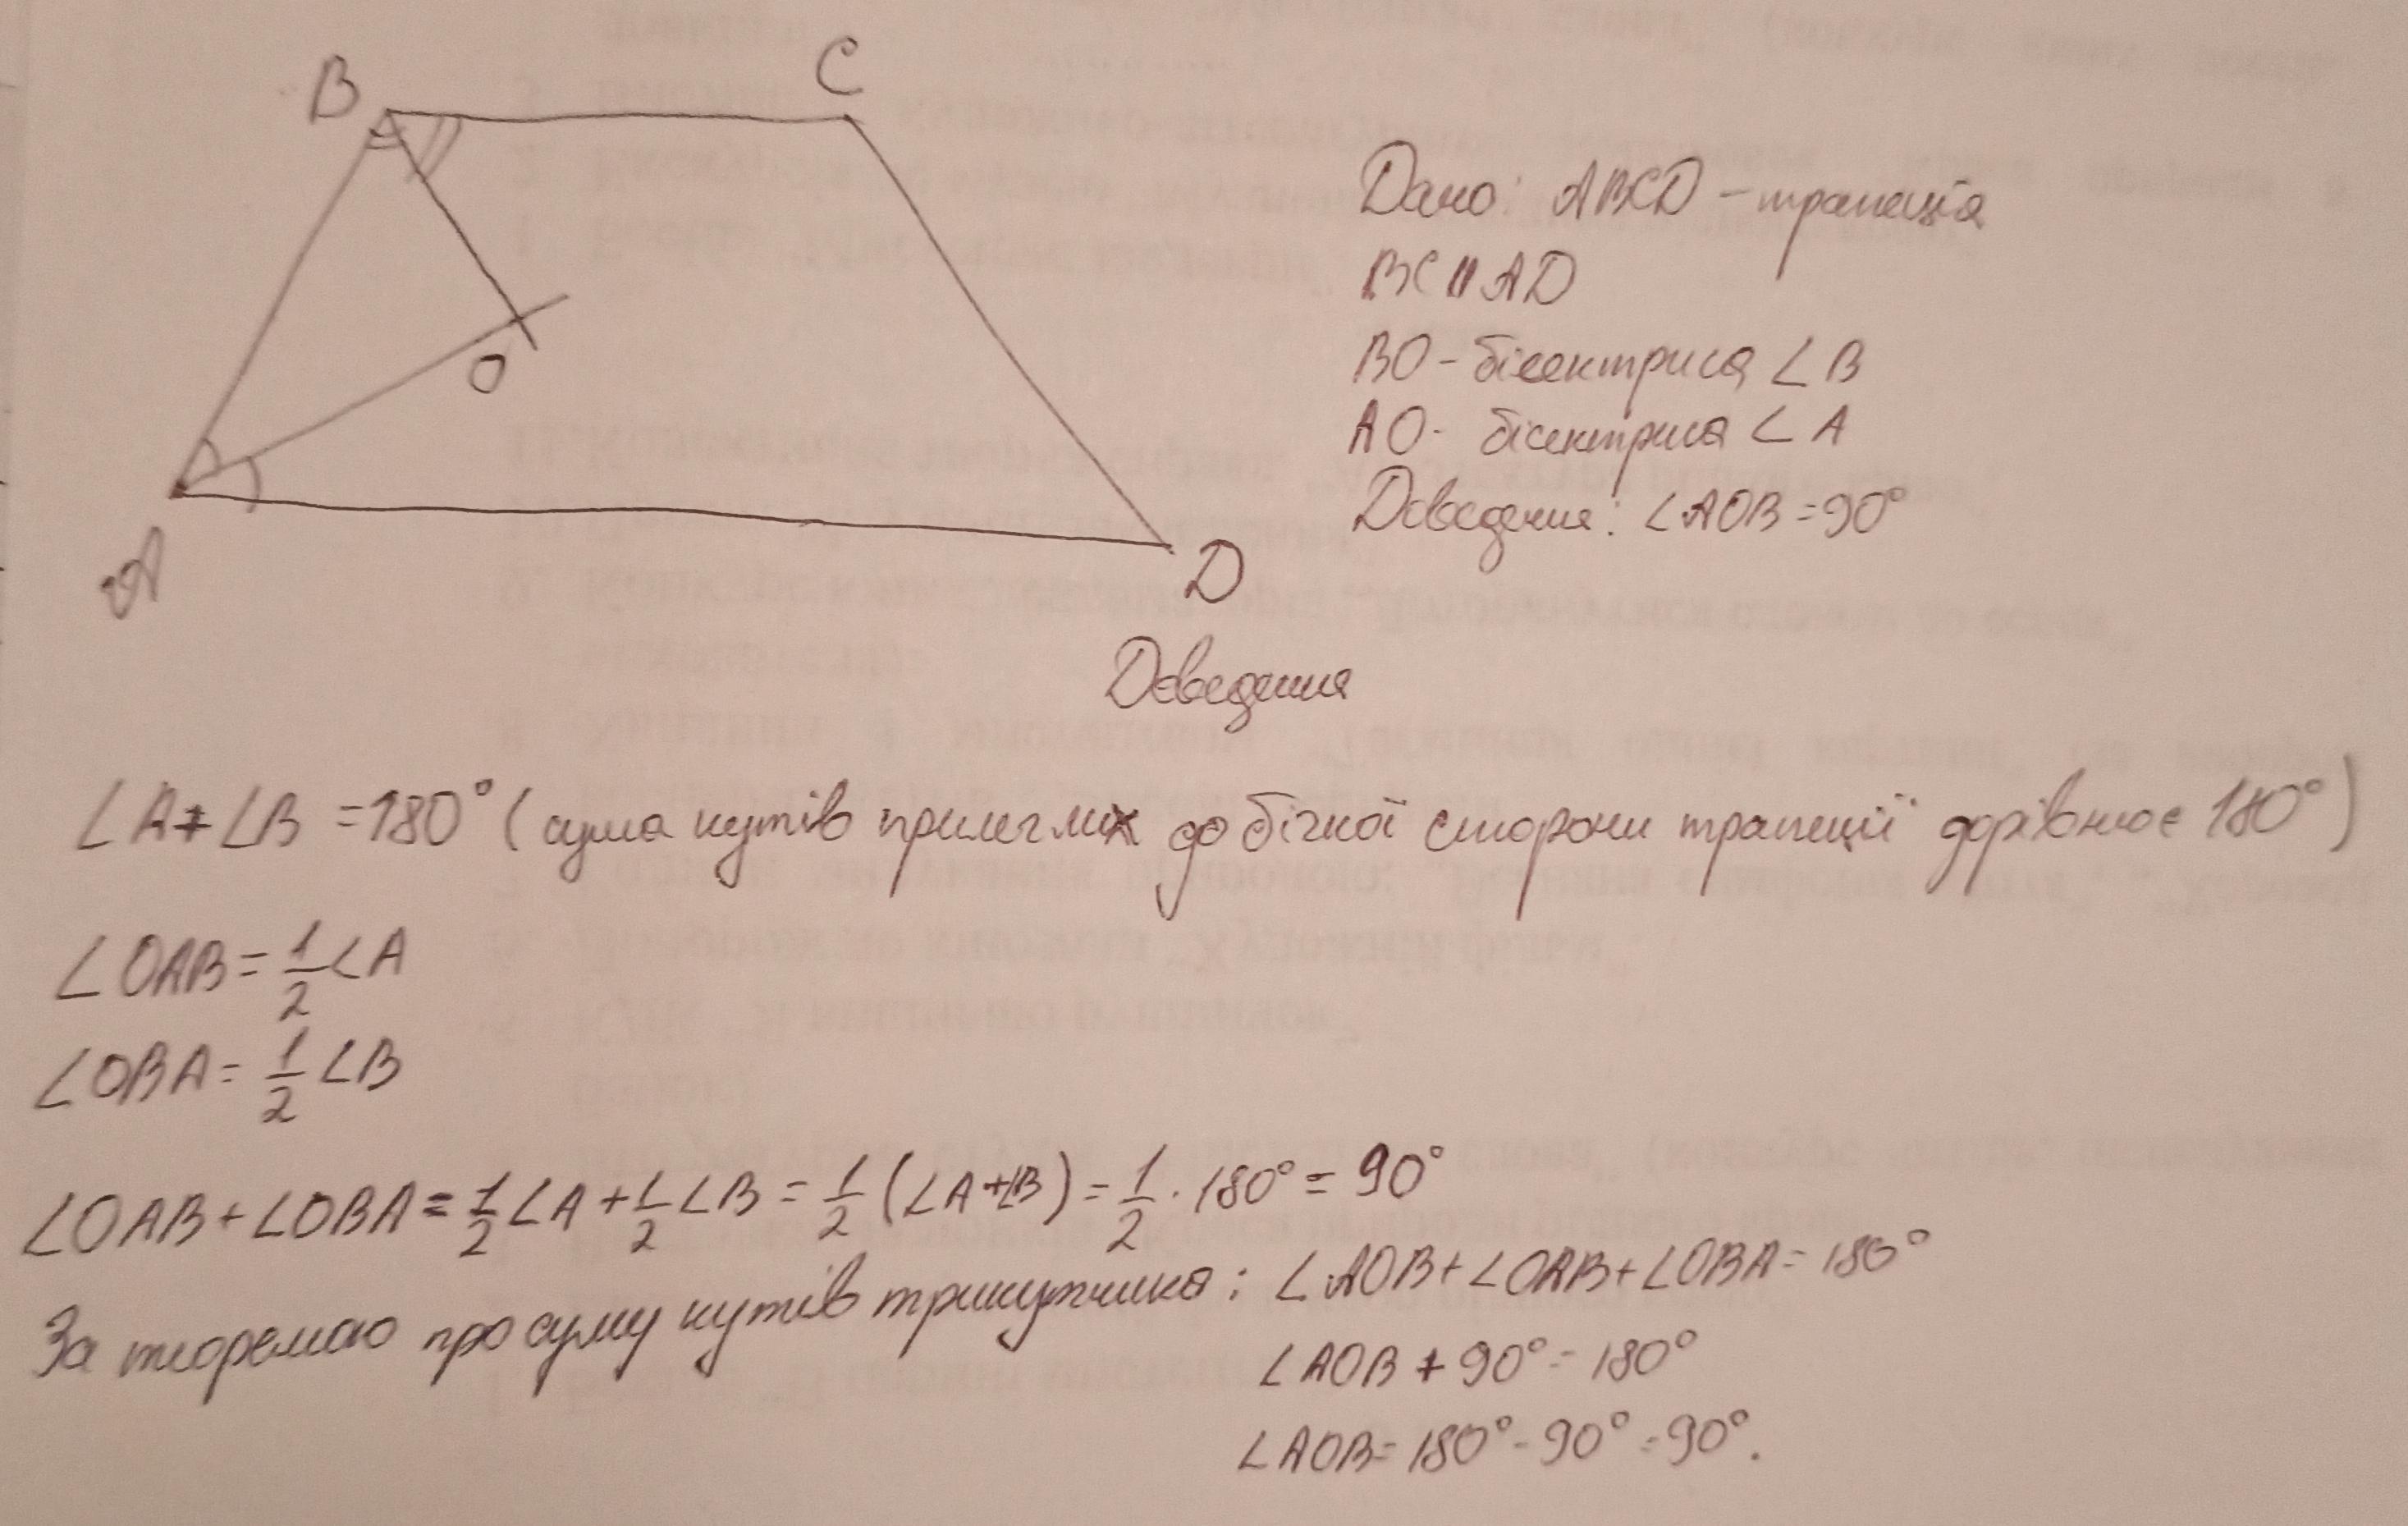 B
C
O
A
D
Дано: ABCD – трапеція
BC || AD
BO – бісектриса ∠B
AO - бісектриса ∠A
Доведення: ∠AOB = 90°
Доведення
∠A + ∠B = 180° (сума кутів прилеглих до бічної сторони трапеції дорівнює 180°)
∠OAB = 1/2 ∠A
∠OBA = 1/2 ∠B
∠OAB + ∠OBA = 1/2 ∠A + 1/2 ∠B = 1/2 (∠A + ∠B) = 1/2 · 180° = 90°
За теоремою про суму кутів трикутника: ∠AOB + ∠OAB + ∠OBA = 180°
∠AOB + 90° = 180°
∠AOB = 180° - 90° = 90°.